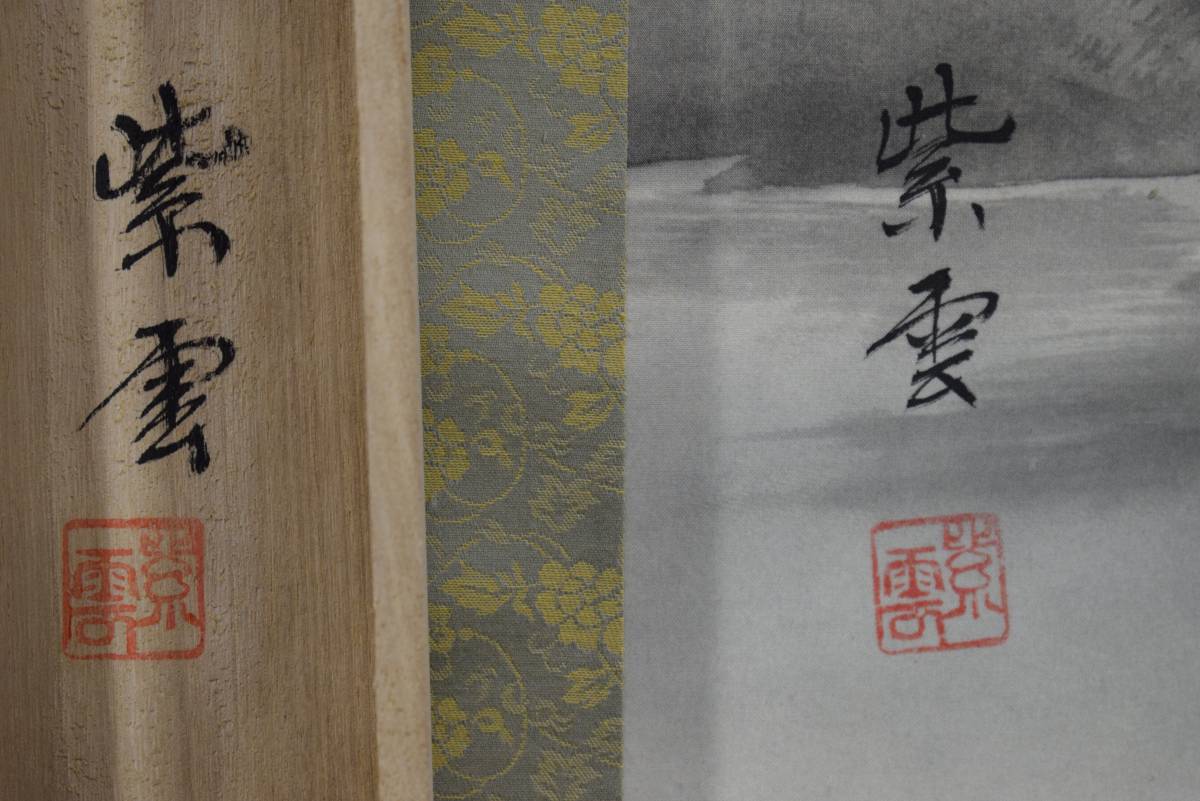 紫雲
紫雲
紫雲
紫雲